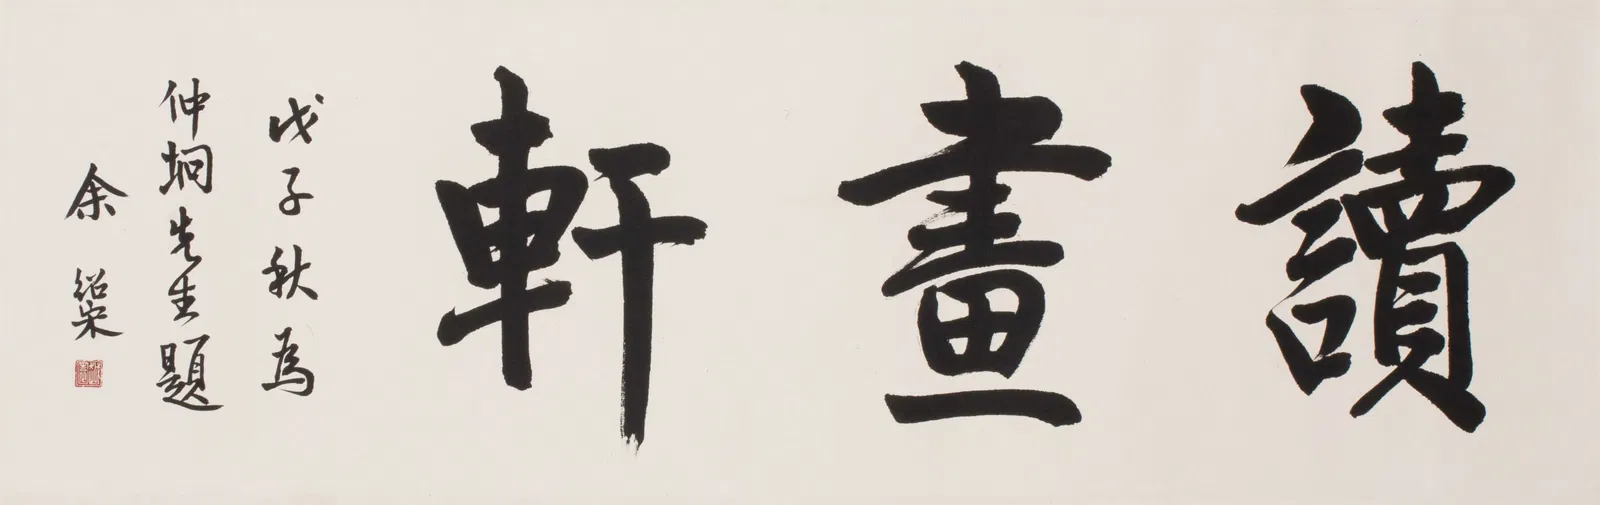 讀畫軒
戊子秋為
仲坰先生題
余紹宋